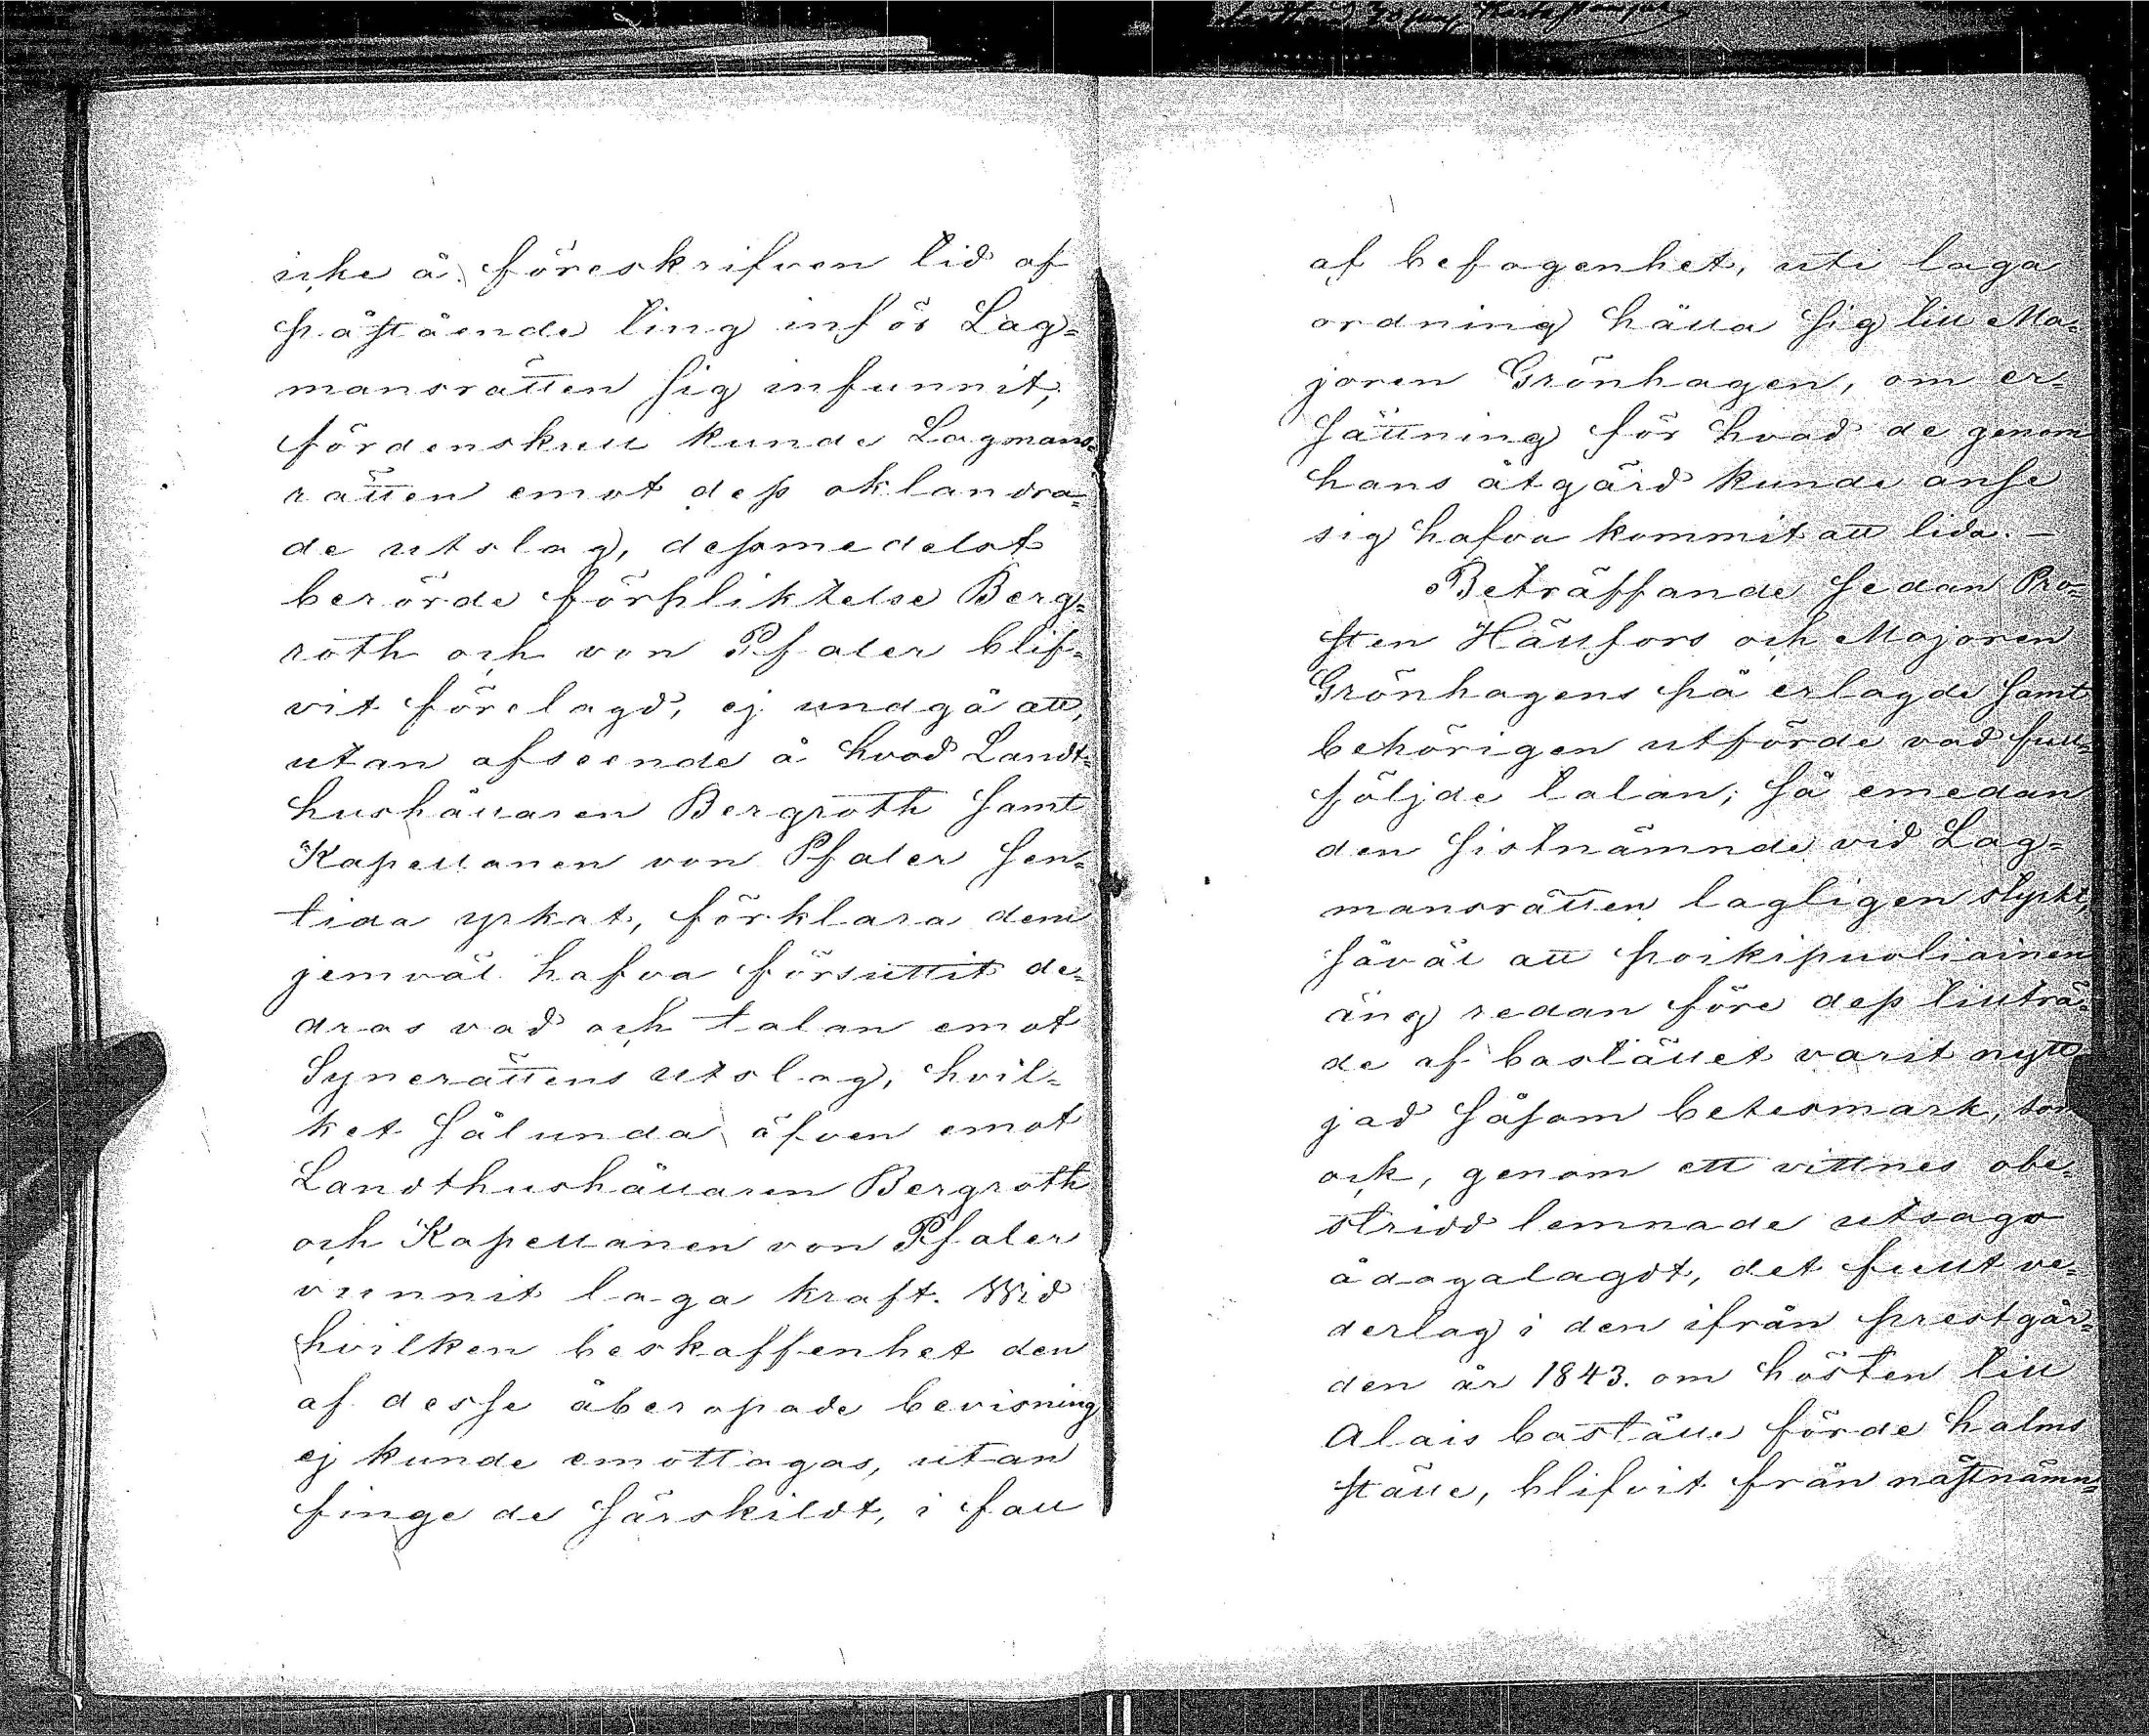 icke å föreskrifven tid af
påstående ting inför Lag=
mansrätten sig infunnit,
fördenskull kunde Lagmans=
rätten emot dess oklandra=
de utslag, dessmedelst
berörde förpliktelse Berg=
roth och von Pfaler blif=
vit förelagd, ej undgå att,
utan afseende å hvad Landt=
hushållaren Bergroth samt
Kapellanen von Pfaler sen=
tida yrkat, förklara dem
jemväl hafva försuttit de=
dras vad och talan emot
Synerättens utslag, hvil=
ket sålunda äfven emot
Landthushållaren Bergroth
och Kapellanen von Pfaler
vunnit laga kraft. Wid
hvilken beskaffenhet den
af desse åberopade bevisning
ej kunde emottagas, utan
finge de särskildt, i fall
af befogenhet, uti laga
ordning hålla sig till Ma=
joren Grönhagen, om er=
sättning för hvad de genom
hans åtgärd kunde anse
sig hafva kommit att lida. —
Beträffande sedan Pro=
sten Hällfors och Majoren
Grönhagens på erlagde samt
behörigen utförde vad full=
följde talan; så emedan
den sistnämnde vid Lag=
mansrätten lagligen styrkt,
såväl att poikipuoliainen
äng redan före dess tillträ=
de af bostället varit nytt=
jad såsom betesmark, som
ock, genom ett vittnes obe=
stridd lemnade utsago
ådagalagdt, det fullt ve=
derlag i den ifrån prestgår=
den år 1843. om hösten till
Alais boställe förde halms
ställe, blifvit från nästnämn=